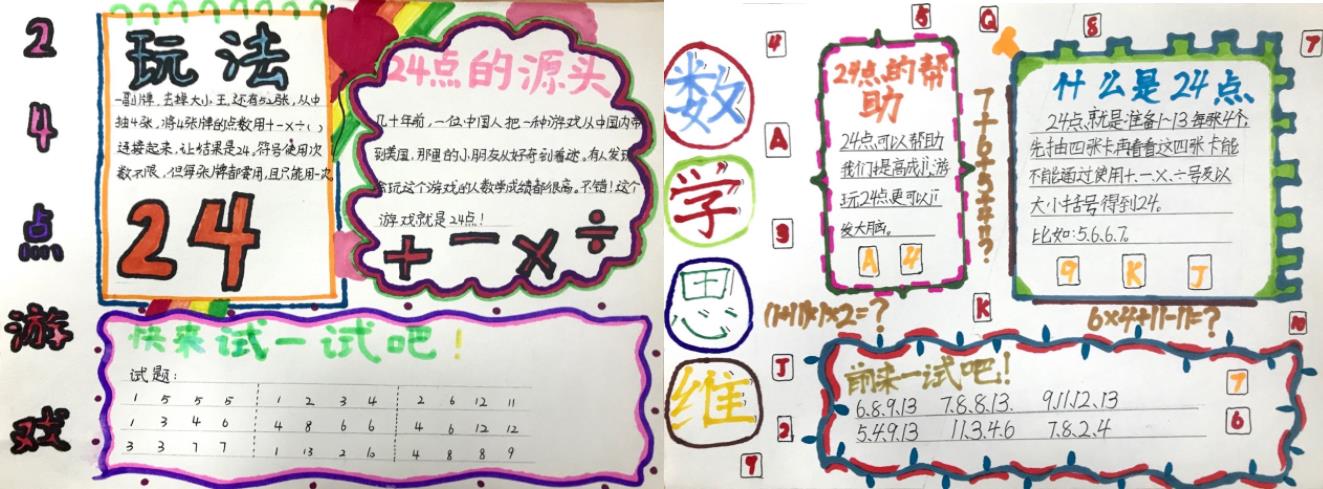 24点游戏
玩法
一副牌,去掉大小王,还有52张,从中
抽4张,将4张牌的点数用+-×÷( )
连接起来,让结果是24,符号使用次
数不限,但每张牌都需用,且只能用一次
24
24点的源头
几十年前,一位中国人把一种游戏从中国内带
到美国,那里的小朋友从好奇到着迷。有人发现
会玩这个游戏的人数学成绩都很高。不错!这个
游戏就是24点!
+ - × ÷
快来试一试吧!
试题:
1 5 5 5 1 2 3 4 2 6 12 11
1 3 4 6 4 8 6 6 4 6 12 12
3 3 7 7 1 13 2 10 4 8 8 9
数学思维
4
A
9
J
2
9
5
Q
8
7
K
10
24点的帮助
24点可以帮助
我们提高成
玩24点更可以
发大脑。
A 4
7+6+5+4=?
什么是24点
24点就是准备1~13每张4个,
先抽四张卡再看看这四张卡能
不能通过使用+.-.×.÷号及以
大小括号得到24。
比如:5.6.6.7。
9 K J
(1+11)×1×2=?
6×4+11-11=?
前来一试吧!
6.8.9.13 7.8.8.13. 9.11.12.13
5.4.9.13 11.3.4.6 7.8.2.4
7
6